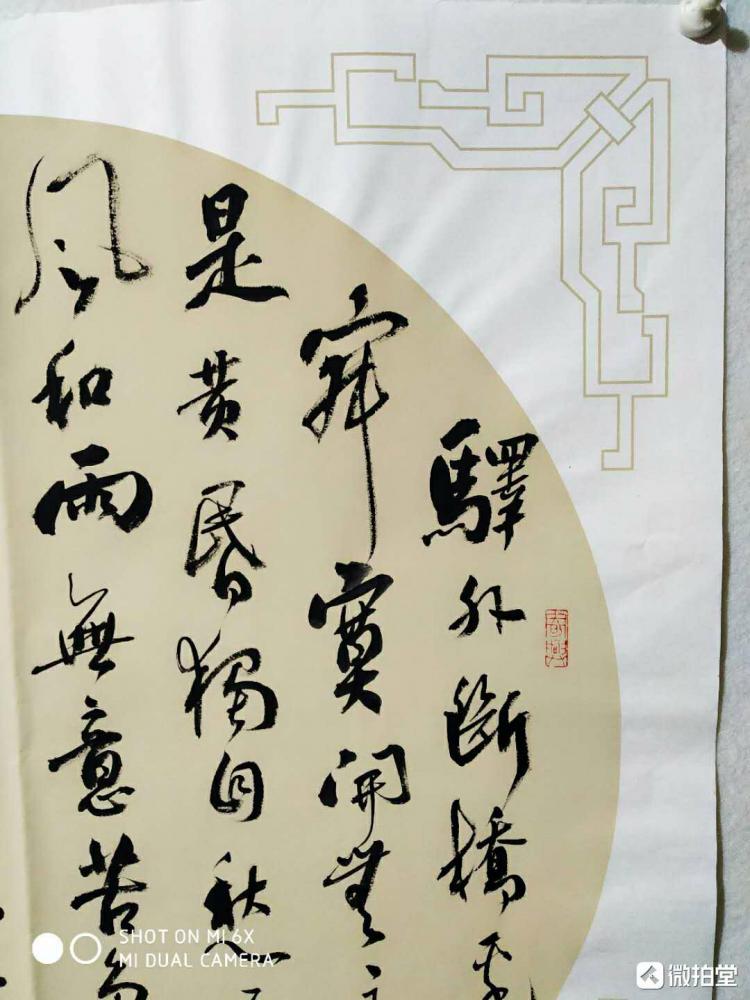 驛外斷橋
寂寞開無主
是黄昏獨自愁
風和雨無意苦
SHOT ON MI 6X
MI DUAL CAMERA
微拍堂